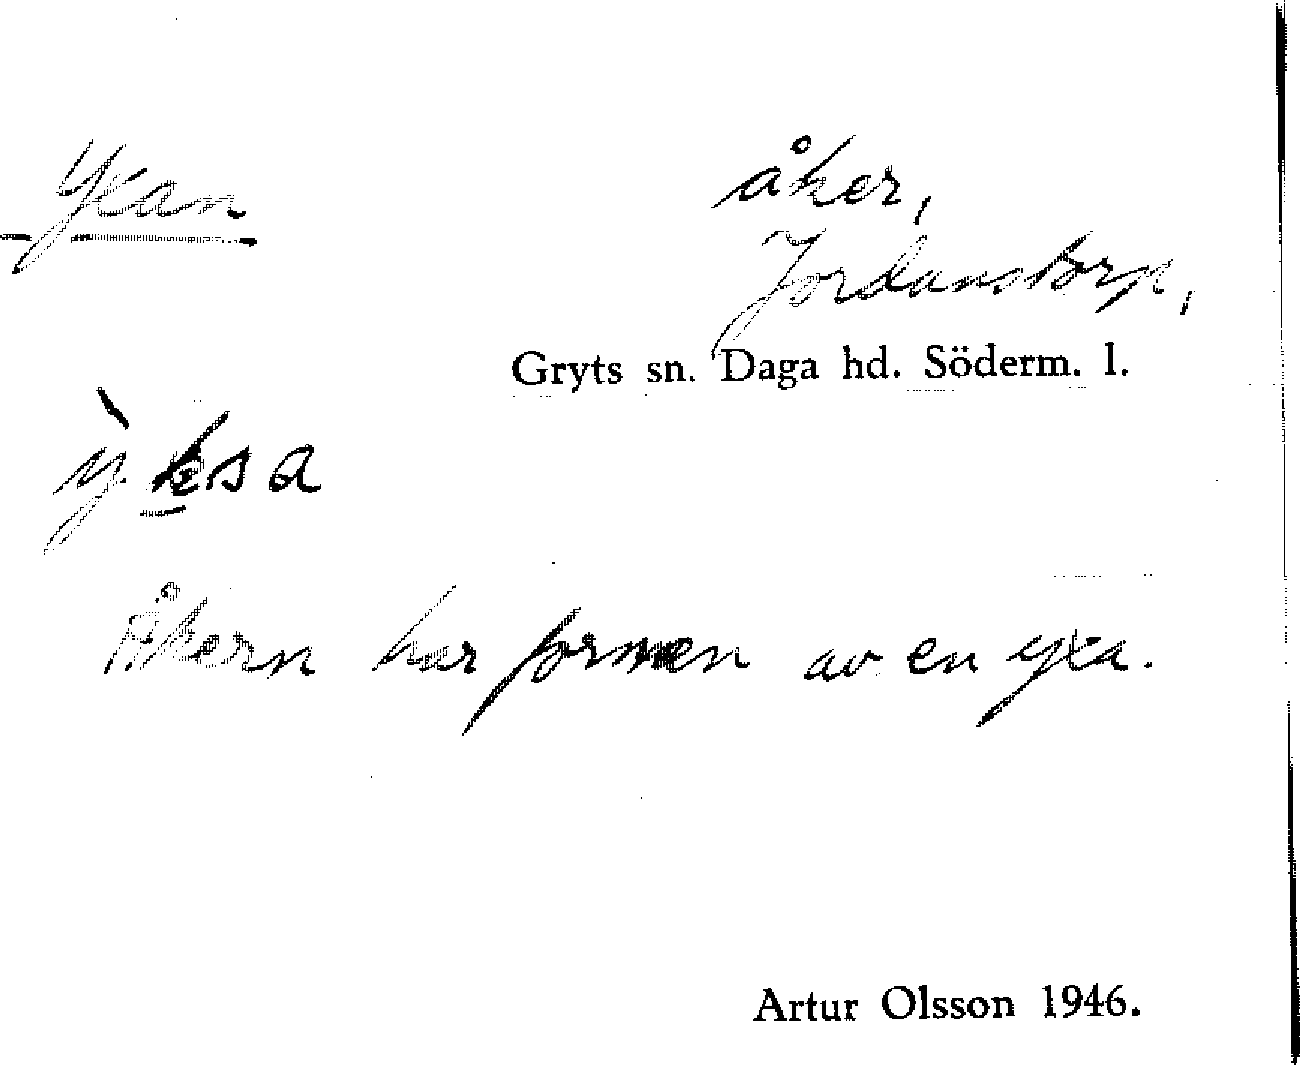 Yxan
åker,
Jordanstorp,
Gryts sn. Daga hd. Söderm. l.
ỳ.ksa
Åkern har formen av en yxa.
Artur Olsson 1946.